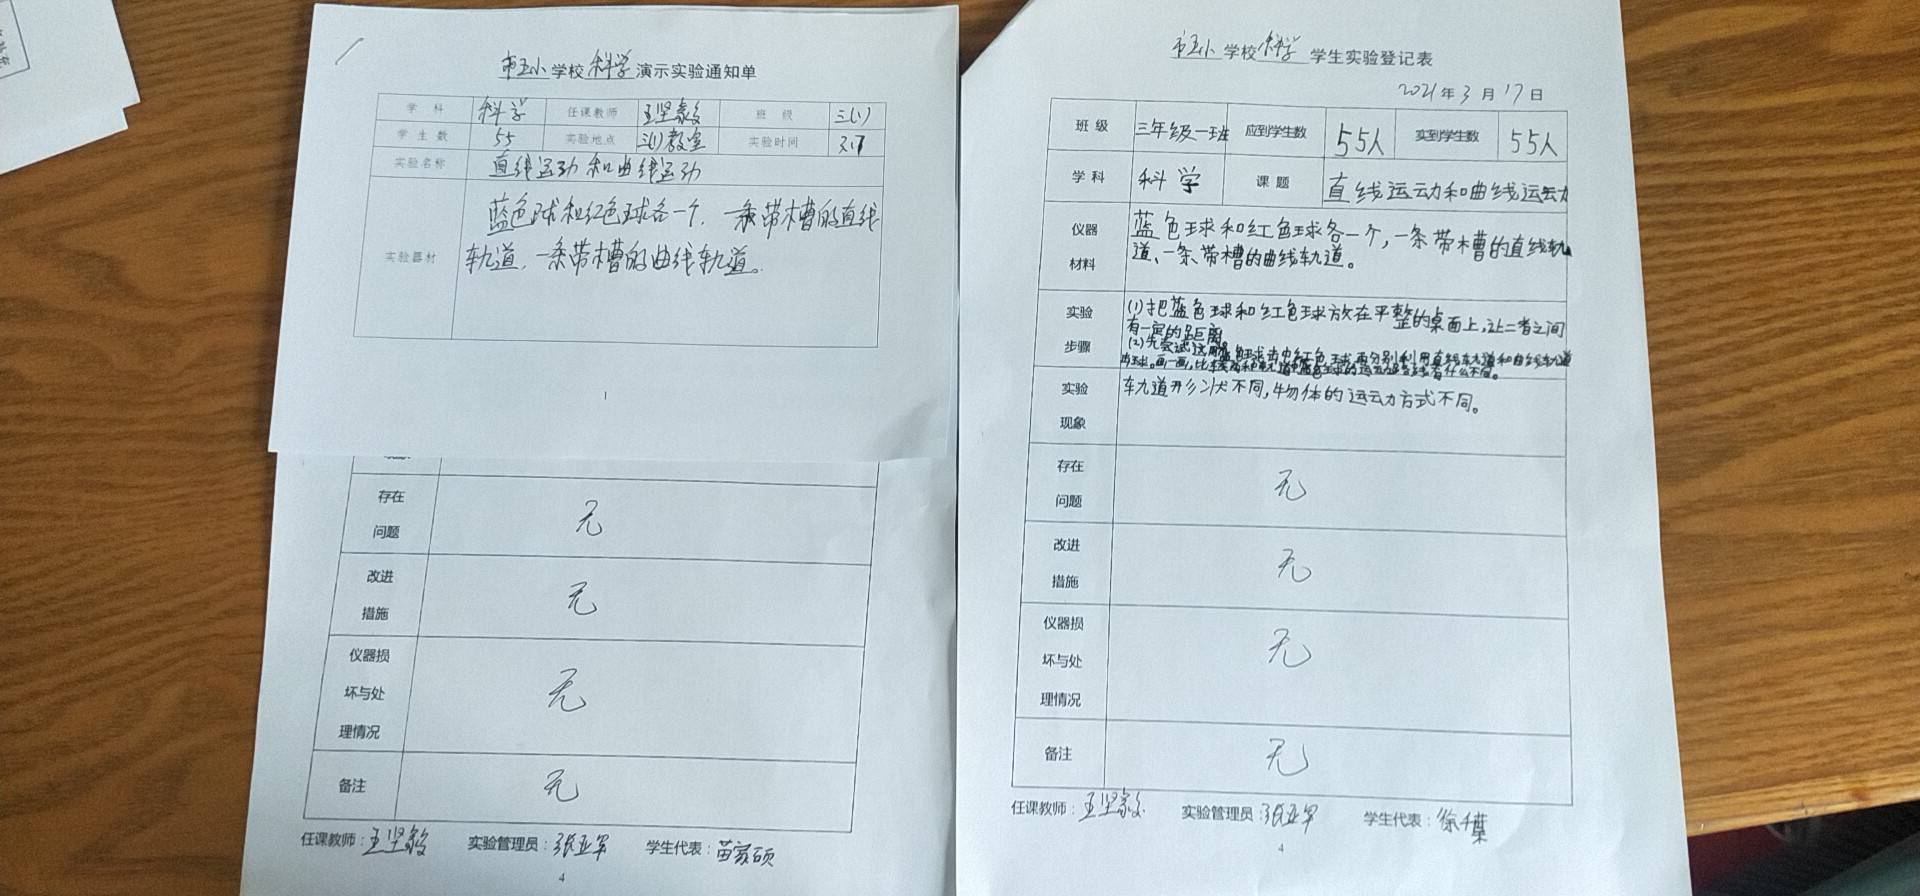 市五小学校科学演示实验通知单
学科 科学 任课教师 班级 三(1)
学生数 55 实验地点 三(1)教室 实验时间 3.17
实验名称 直线运动和曲线运动
实验器材 蓝色球和红色球各一个,一条带槽的直线
轨道,一条带槽的曲线轨道。
1
存在
问题 无
改进
措施 无
仪器损
坏与处
理情况 无
备注 无
任课教师: 实验管理员:张亚军 学生代表:苗家硕
4
市五小学校科学学生实验登记表
2021年3月17日
班级 三年级一班 应到学生数 55人 实到学生数 55人
学科 科学 课题 直线运动和曲线运动
仪器
材料
蓝色球和红色球各一个,一条带槽的直线轨
道、一条带槽的曲线轨道。
实验
步骤
(1)把蓝色球和红色球放在平整的桌面上,让二者之间
有一定的距离。
实验
现象
轨道形状不同,物体的运动方式不同。
存在
问题 无
改进
措施 无
仪器损
坏与处
理情况 无
备注 无
任课教师: 实验管理员:张亚军 学生代表:
4